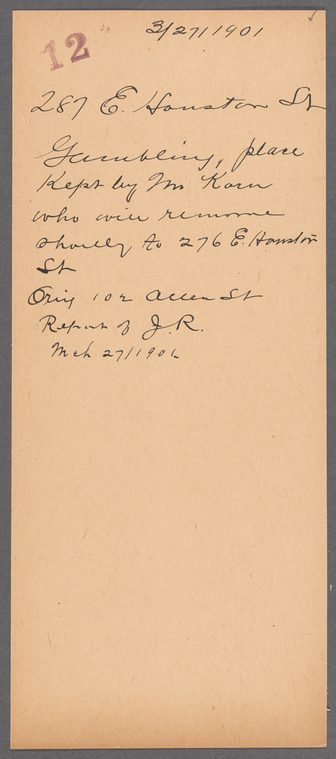 3/27/1901
12
287 E. Houston St
Gambling, place
Kept by Mr Korn
who will remove
shortly to 276 E. Houston
St
Orig 102 Allen St
Report of J. R.
Mch 27/1901